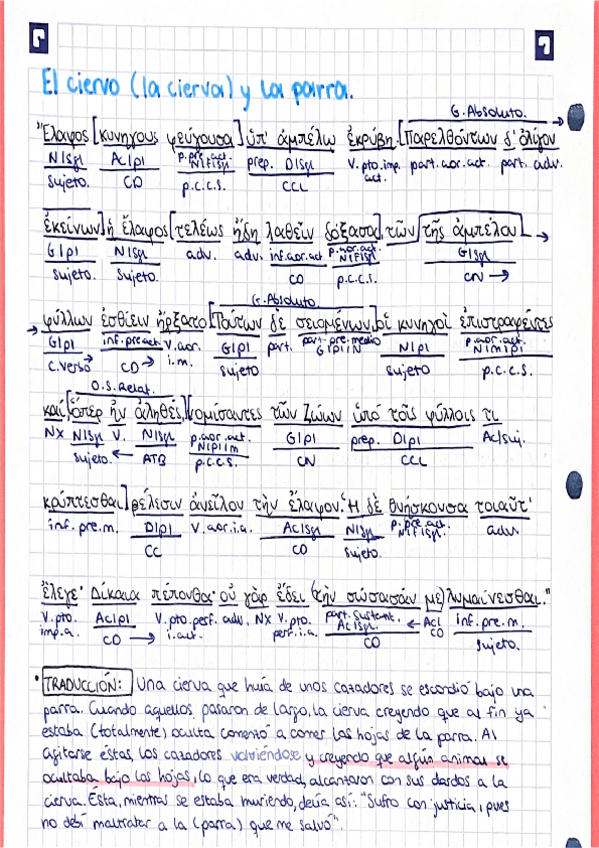 El ciervo (la cierva) y la parra.
G. Absoluto.
Ἔλαφος [κυνηγους φεύγουσα] ὑπ' ἀμπέλω ἐκρύβη. [Παρελθόντων δ' ὀλίγον
N|Sg| Ac|p| p.pre.act. N|F|Sg| prep. D|Sg| V. pto. imp. act. part. aor. act. part. adv.
Sujeto. CD p.c.c.s. CCL
ἐκείνων] ἡ ἔλαφος [τελέως ἤδη λαθεῖν δόξασα], τῶν τῆς ἀμπέλου
G|p| N|Sg| adv. adv. inf. aor. act p. aor. act. N|F|Sg| G|Sg|
Sujeto. Sujeto. CD p.c.c.s. CN
G. Absoluto
φύλλων ἐσθίειν ἤρξατο. [Τούτων δὲ σειομένων], οἱ κυνηγοὶ ἐπιστραφέντες
G|p| inf. pre act V. aor. i.m. G|p| part. part. pre. medio G|p|N N|p| p. aor. act. N|m|p|
C. verbo CD sujeto p.c.c.s.
O.S. Relat.
καί, [ὅπερ ἦν ἀληθές], [νομίσαντες τῶν ζώων ὑπό τοῖς φύλλοις τι
NX N|Sg| V. N|Sg| p. aor. act. N|p|m G|p| prep. D|p| Ac/suj.
sujeto. ATB p.c.c.s. CN CCL
κρύπτεσθαι] βέλεσιν ἀνεῖλον τὴν ἔλαφον. Ἡ δὲ θνήσκουσα τοιαῦτ'
inf. pre. m. D|p| V. aor. i.a. Ac|Sg| N|Sg| p. pre. act. N|F|Sg| adv.
CC CD sujeto.
ἔλεγε· Δίκαια πέπονθα· οὐ γὰρ ἔδει (τὴν σώσασάν με) λυμαίνεσθαι."
V. pto. imp. a. Ac|p| V. pto. perf. i. act. adv. NX V. pto. perf. i.a. part. sustant. Ac|Sg| Ac| CD inf. pre. m.
CD CD sujeto.
• TRADUCCIÓN: Una cierva que huía de unos cazadores se escondió bajo una
parra. Cuando aquellos pasaron de largo, la cierva creyendo que al fin ya
estaba (totalmente) oculta comenzó a comer las hojas de la parra. Al
agitarse éstas, los cazadores volviéndose y creyendo que algún animal se
ocultaba bajo las hojas, lo que era verdad, alcanzaron con sus dardos a la
cierva. Ésta, mientras se estaba muriendo, decía así: "Sufro con justicia, pues
no debí maltratar a la (parra) que me salvó".